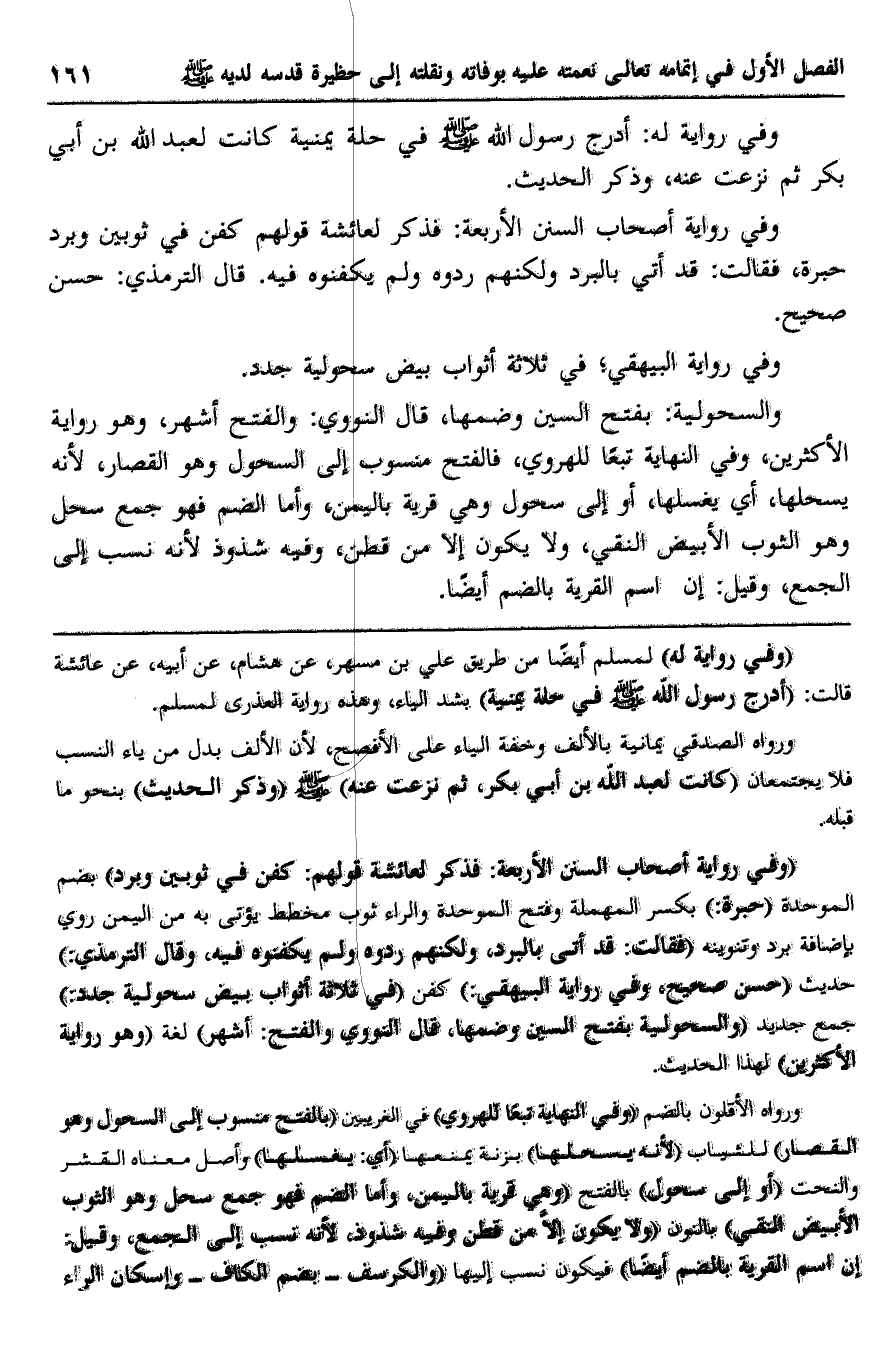 الفصل الأول في إتمامه تعالى نعمته عليه بوفاته ونقلته إلى حظيرة قدسه لديه ﷺ ١٦١
وفي رواية له: أدرج رسول الله ﷺ في حلة يمنية كانت لعبد الله بن أبي
بكر ثم نزعت عنه، وذكر الحديث.
وفي رواية أصحاب السنن الأربعة: فذكر لعائشة قولهم كفن في ثوبين وبرد
حبرة، فقالت: قد أتي بالبرد ولكنهم ردوه ولم يكفنوه فيه. قال الترمذي: حسن
صحيح.
وفي رواية البيهقي؛ في ثلاثة أثواب بيض سحولية جدد.
والسحولية: بفتح السين وضمها، قال النووي: والفتح أشهر، وهو رواية
الأكثرين، وفي النهاية تبعًا للهروي، فالفتح منسوب إلى السحول وهو القصار، لأنه
يسحلها، أي يغسلها، أو إلى سحول وهي قرية باليمن، وأما الضم فهو جمع سحل
وهو الثوب الأبيض النقي، ولا يكون إلا من قطن، وفيه شذوذ لأنه نسب إلى
الجمع، وقيل: إن اسم القرية بالضم أيضًا.
(وفي رواية له) لمسلم أيضًا من طريق علي بن مسهر، عن هشام، عن أبيه، عن عائشة
قالت: (أدرج رسول اللّه ﷺ في حلة يمنية) بشد الياء، وهذه رواية العذرى لمسلم.
ورواه الصدقي يمانية بالألف وخفة الياء على الأفصح، لأن الألف بدل من ياء النسب
فلا يجتمعان (كانت لعبد اللّه بن أبي بكر، ثم نزعت عنه) ﷺ (وذكر الحديث) بنحو ما
قبله.
(وفي رواية أصحاب السنن الأربعة: فذكر لعائشة قولهم: كفن في ثوبين وبرد) بضم
الموحدة (حبرة:) بكسر المهملة وفتح الموحدة والراء ثوب مخطط يؤتى به من اليمن روي
بإضافة برد وتنوينه (فقالت: قد أتى بالبرد، ولكنهم ردوه ولم يكفنوه فيه، وقال الترمذي:)
حديث (حسن صحيح، وفي رواية البيهقي:) كفن (في ثلاثة أثواب بيض سحولية جدد:)
جمع جديد (والسحولية بفتح السين وضمها، قال النووي والفتح: أشهر) لغة (وهو رواية
الأكثرين) لهذا الحديث.
ورواه الأقلون بالضم (وفي النهاية تبعًا للهروي) في الغريبين (بالفتح منسوب إلى السحول وهو
القصار) للثياب (لأنه يسحلها) بزنة يمنعها (أي: يغسلها) وأصل معناه القشر
والنحت (أو إلى سحول) بالفتح (وهي قرية باليمن، وأما الضم فهو جمع سحل وهو الثوب
الأبيض النقي) بالنون (ولا يكون إلاَّ من قطن وفيه شذوذ، لأنه نسب إلى الجمع، وقيل:
إن اسم القرية بالضم أيضًا) فيكون نسب إليها (والكرسف ـ بضم الكاف ـ وإسكان الراء